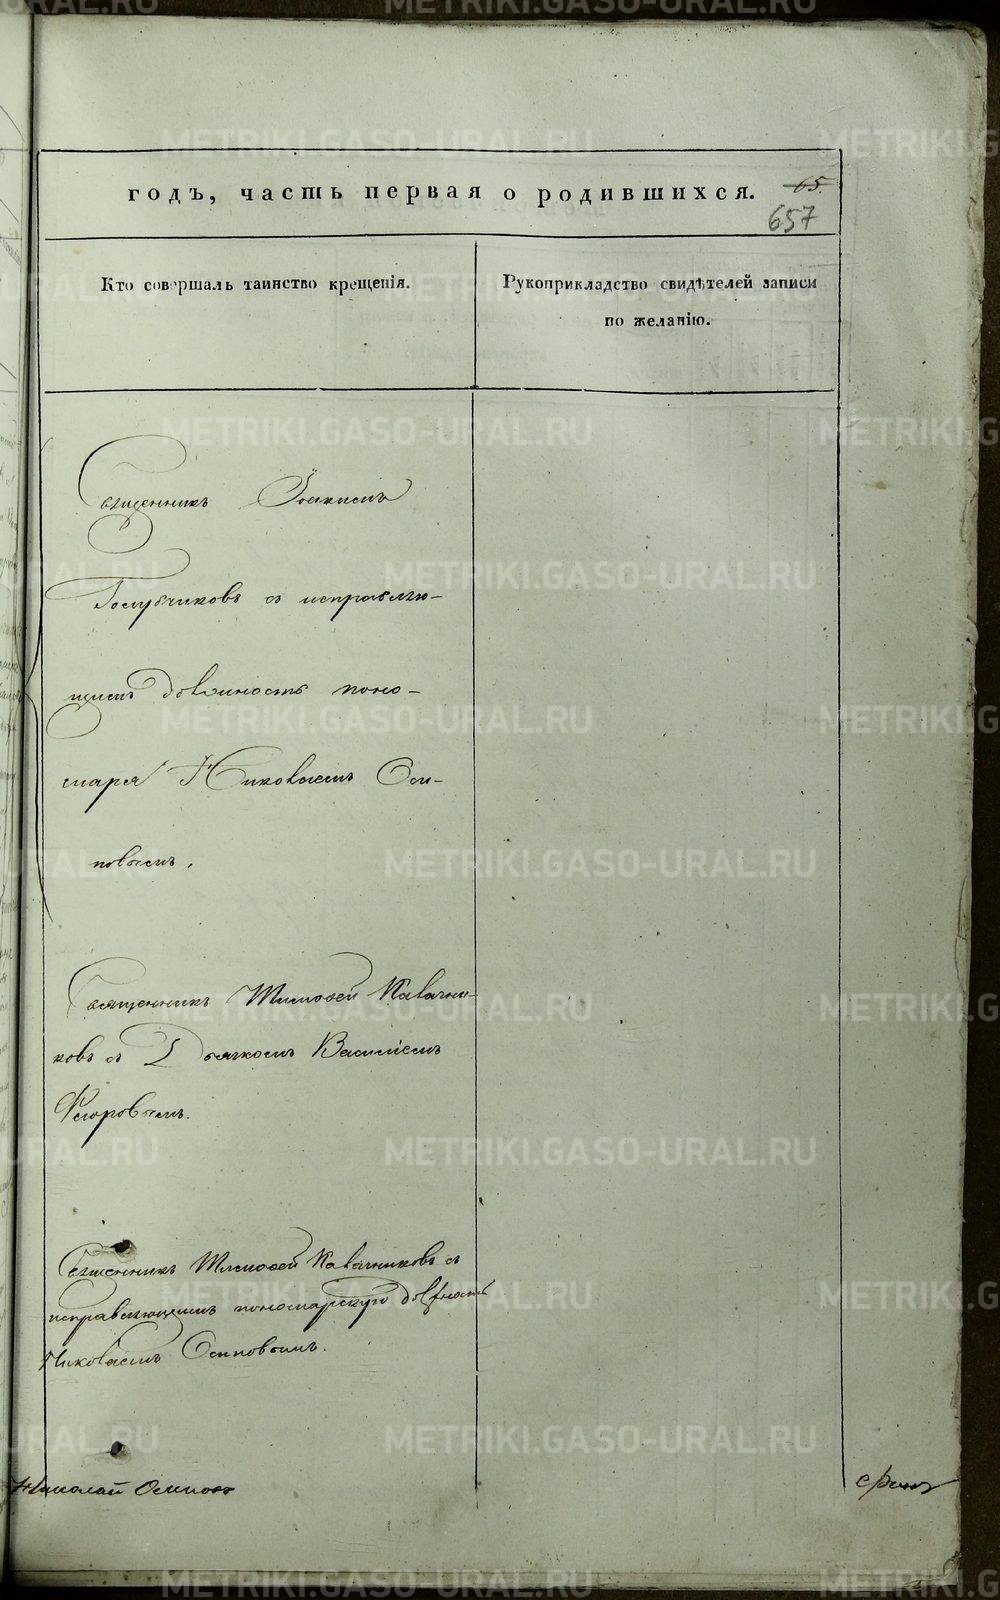 годъ, часть первая о родившихся. 65.
657
Кто совершалъ таинство крещенія.
Рукоприкладство свидѣтелей записи
по желанію.
Священникъ Іоакимъ
Голубчиковъ съ исправляю-
щимъ должность поно-
маря Николаемъ Оси-
повымъ.
Священникъ Тимофей Калачни-
ковъ съ Дьячкомъ Василіемъ
Флоровымъ.
Священникъ Тимофей Калачниковъ съ
исправляющимъ пономарскую должность
Николаемъ Осиповымъ.
Николай Осиповъ
METRIKI.GASO-URAL.RU